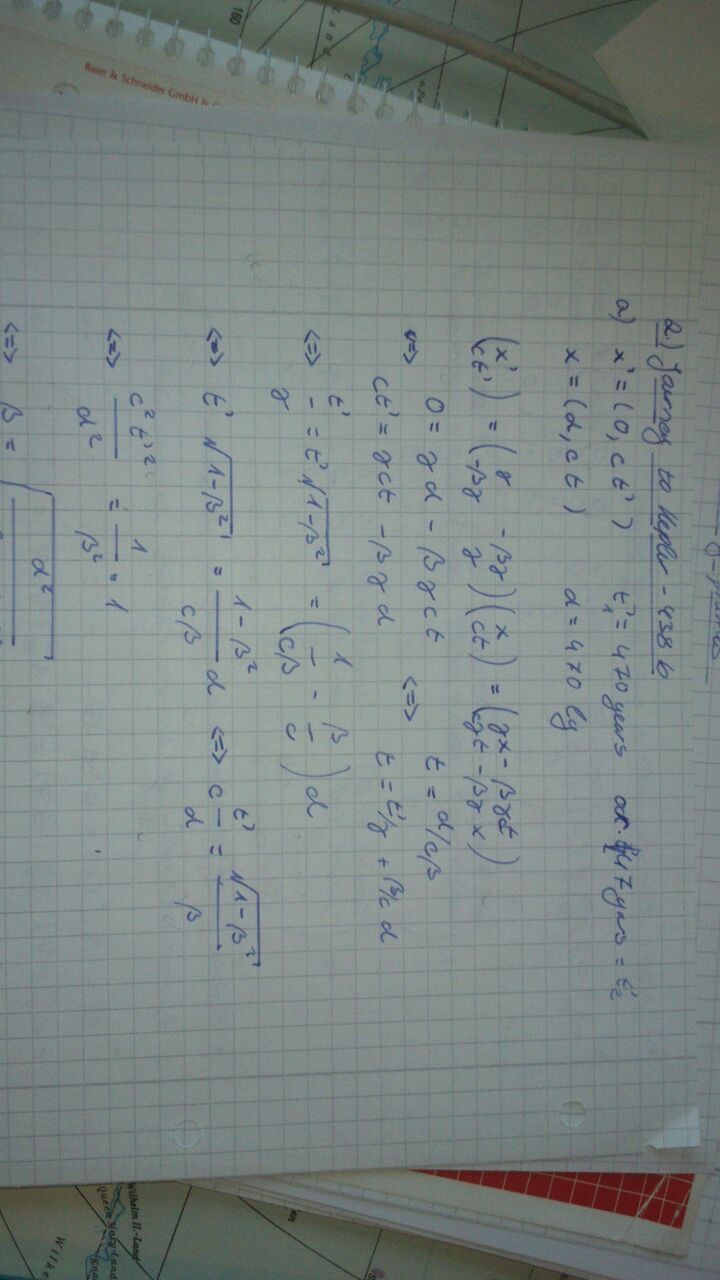 2.) Journey to Kepler - 438 b
a) x' = (0, ct') t'₁ = 470 years or 47 years = t'₂
x = (d, ct) d = 470 ly
(x' ct') = (γ -βγ -βγ γ)(x ct) = (γx - βγct cγt - βγx)
<=> 0 = γd - βγct <=> t = d/cβ
ct' = γct - βγd t = t'/γ + β/c d
<=> t'/γ = t' √1-β² = (1/cβ - β/c) d
<=> t' √1-β² = 1-β²/cβ d <=> c t'/d = √1-β²/β
<=> c²t'²/d² = 1/β² = 1
<=> β = √d²
Baier & Schneider GmbH &
160
Land
Wilhelm II.-Land
Queen Mary Land
Wilke